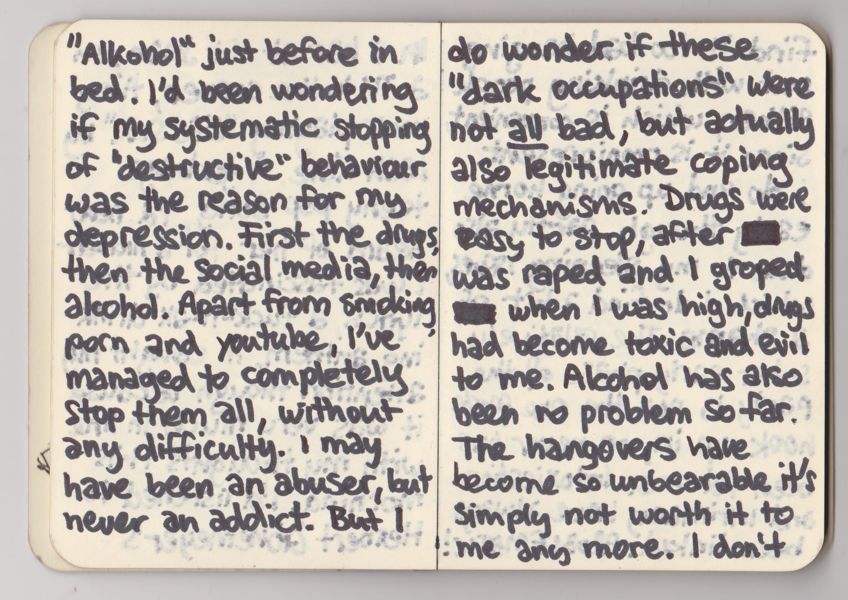 "Alkohol" just before in
bed. I'd been wondering
if my systematic stopping
of "destructive" behaviour
was the reason for my
depression. First the drugs,
then the social media, then
alcohol. Apart from smoking,
porn and youtube, I've
managed to completely
stop them all, without
any difficulty. I may
have been an abuser, but
never an addict. But I
do wonder if these
"dark occupations" were
not all bad, but actually
also legitimate coping
mechanisms. Drugs were
easy to stop, after
was raped and I groped
when I was high, drugs
had become toxic and evil
to me. Alcohol has also
been no problem so far.
The hangovers have
become so unbearable it's
simply not worth it to
me any more. I don't